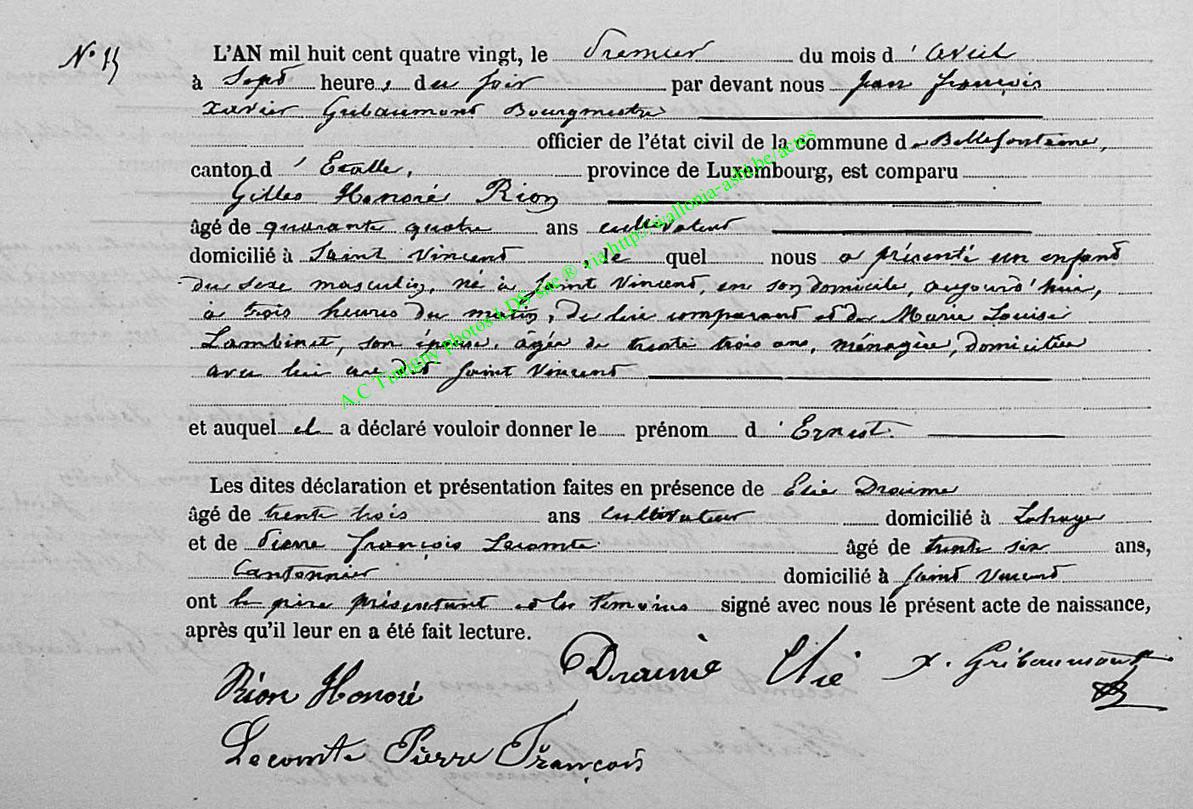 N° 33
L'AN mil huit cent quatre vingt, le Premier du mois d'avril
à Sept heures du soir par devant nous Jean François
Xavier Gribaumont Bourgmestre
officier de l'état civil de la commune de Bellefontaine,
canton d'Etalle, province de Luxembourg, est comparu
Gilles Honoré Rion
âgé de quarante quatre ans cultivateur
domicilié à Saint Vincent, le quel nous a présenté un enfant
du sexe masculin, né à Saint Vincent, en son domicile, aujourd'hui,
à trois heures du matin, de lui comparant et de Marie Louise
Lambinet, son épouse, âgée de trente trois ans, ménagère, domiciliée
avec lui au dit Saint Vincent
et auquel il a déclaré vouloir donner le prénom d'Ernest.
Les dites déclaration et présentation faites en présence de Elie Draime
âgé de trente trois ans cultivateur domicilié à Lahage
et de Pierre François Lecomte âgé de trente six ans,
Cantonnier domicilié à Saint Vincent
ont le père présentant et les témoins signé avec nous le présent acte de naissance,
après qu'il leur en a été fait lecture.
Draime Elie X. Gribaumont
Rion Honoré
Lecomte Pierre François
A.C Tintigny photos LDS site ® via http://wallonia-asbl.be/actes